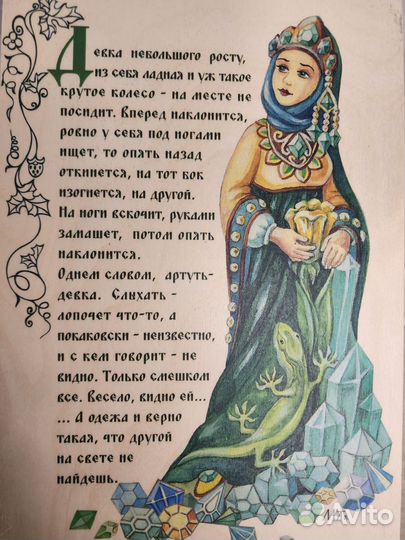 Девка небольшого росту,
из себя ладная и уж такое
крутое колесо - на месте не
посидит. Вперед наклонится,
ровно у себя под ногами
ищет, то опять назад
откинется, на тот бок
изогнется, на другой.
На ноги вскочит, руками
замашет, потом опять
наклонится.
Однем словом, артуть-
девка. Слыхать -
лопочет что-то, а
покаковски - неизвестно,
и с кем говорит - не
видно. Только смешком
все. Весело, видно ей...
... А одежа и верно
такая, что другой
на свете не
найдешь.
Avito